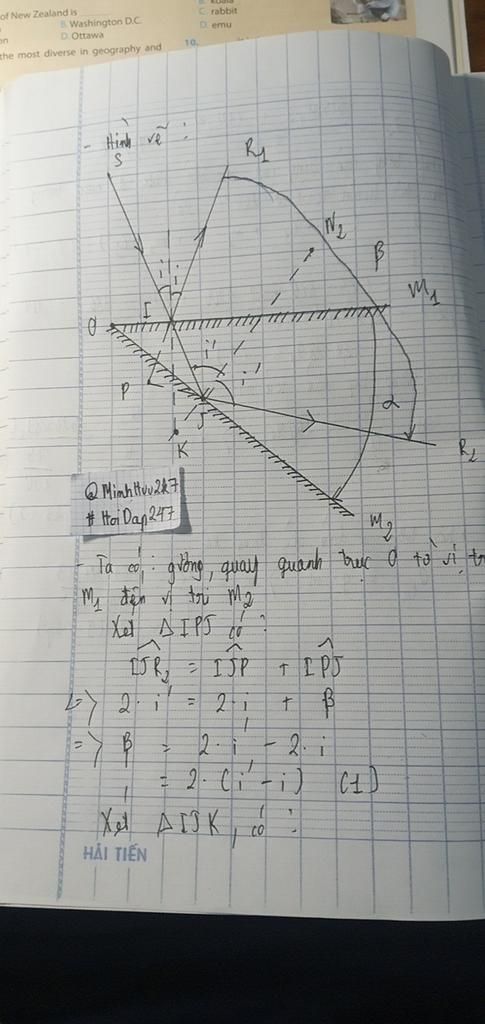 of New Zealand is
B. Washington D.C.
C. rabbit
D. Ottawa
D. emu
the most diverse in geography and
10.
- Hình vẽ :
S
R1
N2
β
M1
i
i
I
O
i'
i'
P
J
α
K
R2
@MinhHuu2k7
# HoiDap247
M2
- Ta có : gương quay quanh trục O từ vị tr
M1 đến vị trí M2
Xét Δ IPJ có :
IJR2 = IJP + IPJ
<=> 2. i' = 2. i + β
=> β = 2. i' - 2. i
= 2. (i' - i) (1)
Xét Δ IJK, có :
HẢI TIẾN